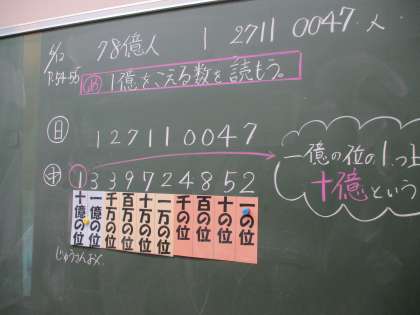 6/12 78億人 1 2711 0047 人
P.54-55 1億をこえる数を読もう。
日 127110047
中 1339724852
一億の位の1つ上
十億という
十億の位 一億の位 千万の位 百万の位 十万の位 一万の位 千の位 百の位 十の位 一の位
じゅうおくの